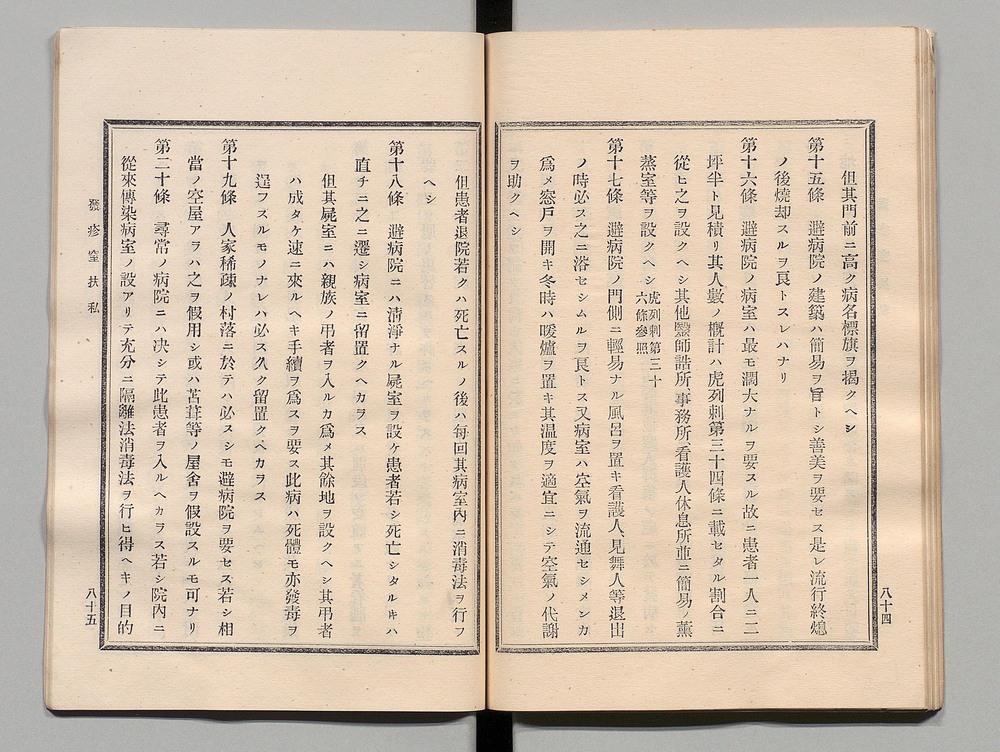 但其門前ニ高ク病名標旗ヲ揭クヘシ
第十五條　避病院ノ建築ハ簡易ヲ旨トシ善美ヲ要セス是レ流行終熄
ノ後燒却スルヲ良トスレハナリ
第十六條　避病院ノ病室ハ最モ濶大ナルヲ要スル故ニ患者一人ニ二
坪半ト見積リ其人數ノ槪計ハ虎列剌第三十四條ニ載セタル割合ニ
從ヒ之ヲ設クヘシ其他醫師詰所事務所看護人休息所並ニ簡易ノ薰
蒸室等ヲ設クヘシ虎列剌第三十六條參照
第十七條　避病院ノ門側ニ輕易ナル風呂ヲ置キ看護人見舞人等退出
ノ時必ス之ニ浴セシムルヲ良トス又病室ハ空氣ヲ流通セシメンカ
爲メ窓戶ヲ開キ冬時ハ暖爐ヲ置キ其温度ヲ適宜ニシテ空氣ノ代謝
ヲ助クヘシ
八十四
但患者退院若クハ死亡スルノ後ハ每回其病室內ニ消毒法ヲ行フ
ヘシ
第十八條　避病院ニハ清淨ナル屍室ヲ設ケ患者若シ死亡シタルキハ
直チニ之ニ遷シ病室ニ留置クヘカラス
但其屍室ニハ親族ノ弔者ヲ入ルカ爲メ其餘地ヲ設クヘシ其弔者
ハ成タケ速ニ來ルヘキ手續ヲ爲スヲ要ス此病ハ死體モ亦發毒ヲ
逞フスルモノナレハ必ス久ク留置クヘカラス
第十九條　人家稀疎ノ村落ニ於テハ必スシモ避病院ヲ要セス若シ相
當ノ空屋アラハ之ヲ假用シ或ハ苫葺等ノ屋舍ヲ假設スルモ可ナリ
第二十條　尋常ノ病院ニハ决シテ此患者ヲ入ルヘカラス若シ院內ニ
從來傳染病室ノ設アリテ充分ニ隔離法消毒法ヲ行ヒ得ヘキノ目的
發疹窒扶私
八十五